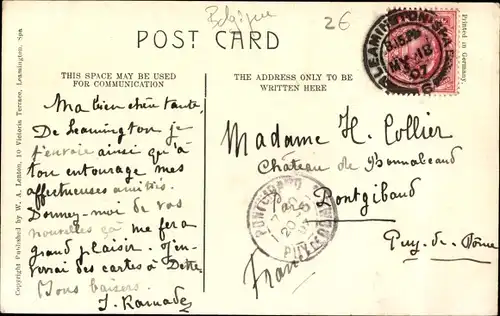 Belgique
2€
POST CARD
THIS SPACE MAY BE USED
FOR COMMUNICATION
THE ADDRESS ONLY TO BE
WRITTEN HERE
Printed in Germany.
Copyright Published by W. A. Lenton, 10 Victoria Terrace, Leamington. Spa
LEAMINGTON SPA
MY 18
07
Ma bien chère tante,
De Leamington je
t'envoie ainsi qu'à
ton entourage mes
affectueuses amitiés.
Donnez-moi de vos
nouvelles ça me fera
grand plaisir. J'en-
verrai des cartes à
Bons baisers.
Madame H. Collier
Château de
Pontgibaud
Puy-de-Dôme
France
PONTGIBAUD
20
07
PUY DE DOME